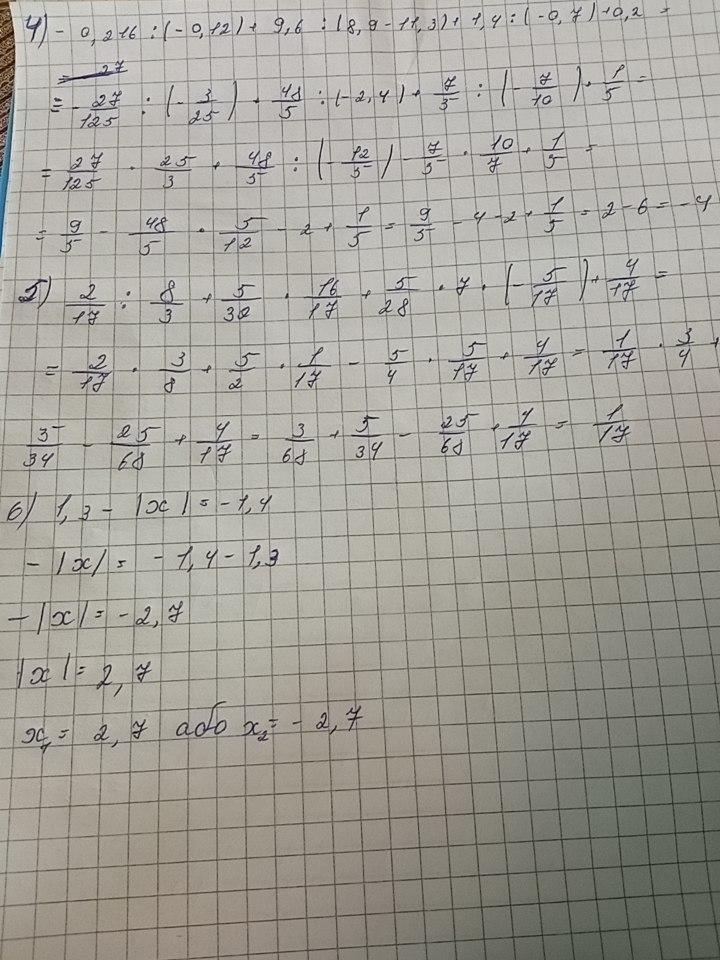 4) - 0,216 : (-0,12) + 9,6 : (8,9 - 11,3) + 1,4 : (-0,7) + 0,2 =
= - 27/125 : (- 3/25) + 48/5 : (-2,4) + 7/5 : (- 7/10) + 1/5 =
= 27/125 · 25/3 + 48/5 : (- 12/5) - 7/5 · 10/7 + 1/5 =
= 9/5 - 48/5 · 5/12 - 2 + 1/5 = 9/5 - 4 - 2 + 1/5 = 2 - 6 = -4
5) 2/17 : 8/3 + 5/32 · 16/17 + 5/28 · 7 · (- 5/17) + 4/17 =
= 2/17 · 3/8 + 5/2 · 1/17 - 5/4 · 5/17 + 4/17 = 1/17 · 3/4 +
5/34 - 25/68 + 4/17 = 3/68 + 5/34 - 25/68 + 4/17 = 1/17
6) 1,3 - |x| = -1,4
- |x| = - 1,4 - 1,3
- |x| = - 2,7
|x| = 2,7
x₁ = 2,7 або x₂ = - 2,7